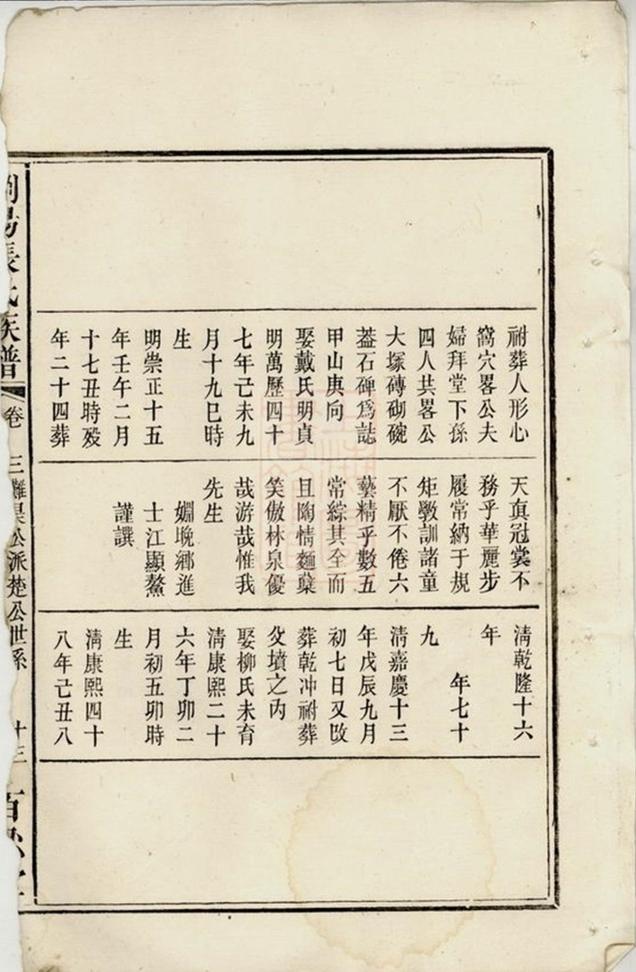 祔葬人形心
窩穴畧公夫
婦拜堂下孫
四人共畧公
大塚磚砌碗
葢石碑爲誌
甲山庚向
娶戴氏明貞
明萬歷四十
七年己未九
月十九巳時
生
明崇正十五
年壬午二月
十七丑時殁
年二十四葬
天真冠裳不
務乎華麗步
履常納于規
矩斆訓諸童
不厭不倦六
藝精乎數五
常綜其全而
且陶情麵蘖
笑傲林泉優
哉游哉惟我
先生
姻晚鄉進
士江顯鰲
謹譔
淸乾隆十六
年
年七十
九
淸嘉慶十三
年戊辰九月
初七日又改
葬乾冲祔葬
父墳之丙
娶柳氏未育
淸康熙二十
六年丁卯二
月初五卯時
生
淸康熙四十
八年己丑八
瀏陽張氏族譜
卷三
公派楚公世系
十三
百忍